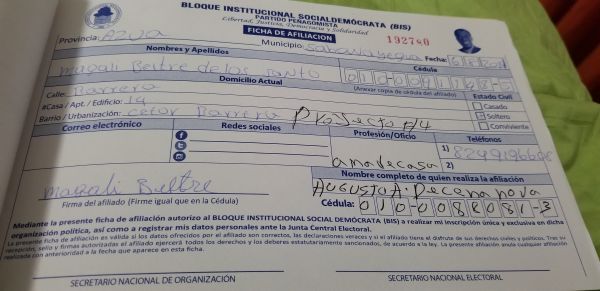 BLOQUE INSTITUCIONAL SOCIALDEMÓCRATA (BIS)
PARTIDO PEÑAGOMISTA
Libertad, Justicia, Democracia y Solidaridad
FICHA DE AFILIACIÓN
192740
Provincia: AZUA Municipio: Sabana yegua Fecha:
Nombres y Apellidos Cédula
magali Beltre de los Santo
Domicilio Actual
(Anexar copia de cédula del afiliado)
Estado Civil
Calle: Barrera
Casado
#Casa / Apt. / Edificio: 19
Soltero
Barrio / Urbanización: Barrera Proyecto
Conviviente
Correo electrónico Redes sociales Profesión/Oficio Teléfonos
1)
amadecasa 2)
Nombre completo de quien realiza la afiliación
magali Beltre
AUGUSTO A.
Firma del afiliado (Firme igual que en la Cédula)
Cédula: 010-0088081-3
Mediante la presente ficha de afiliación autorizo al BLOQUE INSTITUCIONAL SOCIAL DEMÓCRATA (BIS) a realizar mi inscripción única y exclusiva en dicha
organización política, así como a registrar mis datos personales ante la Junta Central Electoral.
La presente ficha de afiliación es válida si los datos ofrecidos por el afiliado son correctos, las declaraciones veraces y si el afiliado tiene el disfrute de sus derechos civiles y políticos. Tras su
recepción, sello y firmas autorizadas el afiliado ejercerá todos los derechos y los deberes estatutariamente sancionados, de acuerdo a la ley. La presente afiliación anula cualquier afiliación
realizada con anterioridad a la fecha que aparece en esta ficha.
SECRETARIO NACIONAL DE ORGANIZACIÓN SECRETARIO NACIONAL ELECTORAL